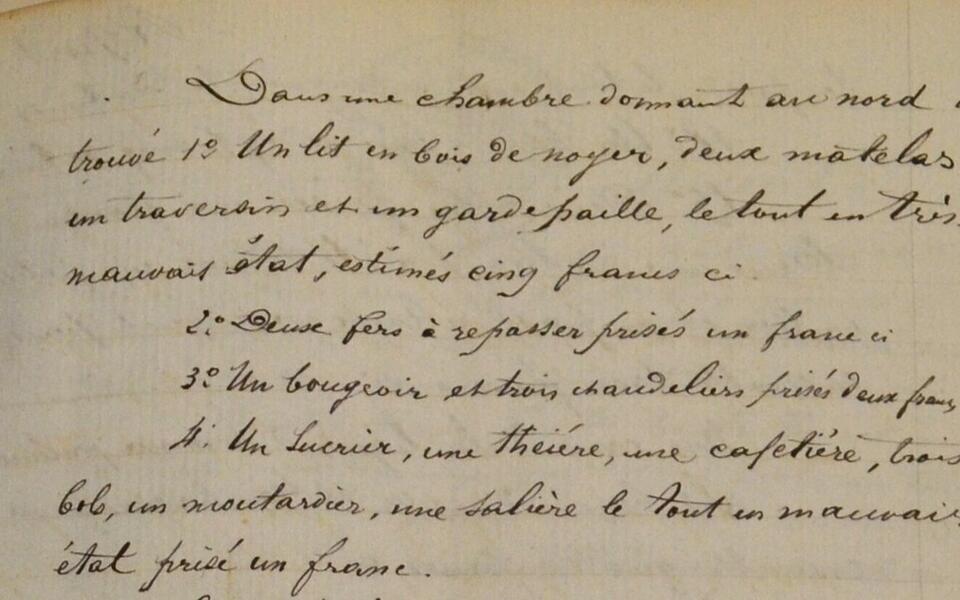 Dans une chambre donnant au nord
trouvé 1º Un lit en bois de noyer, deux matelas
un traversin et un gardepaille, le tout en très
mauvais état, estimés cinq francs ci
2º Deux fers à repasser prisés un franc ci
3º Un bougeoir et trois chandeliers prisés deux francs
4º Un Sucrier, une théiére, une cafetiére, trois
bols, un moutardier, une salière le tout en mauvais
état prisé un franc.